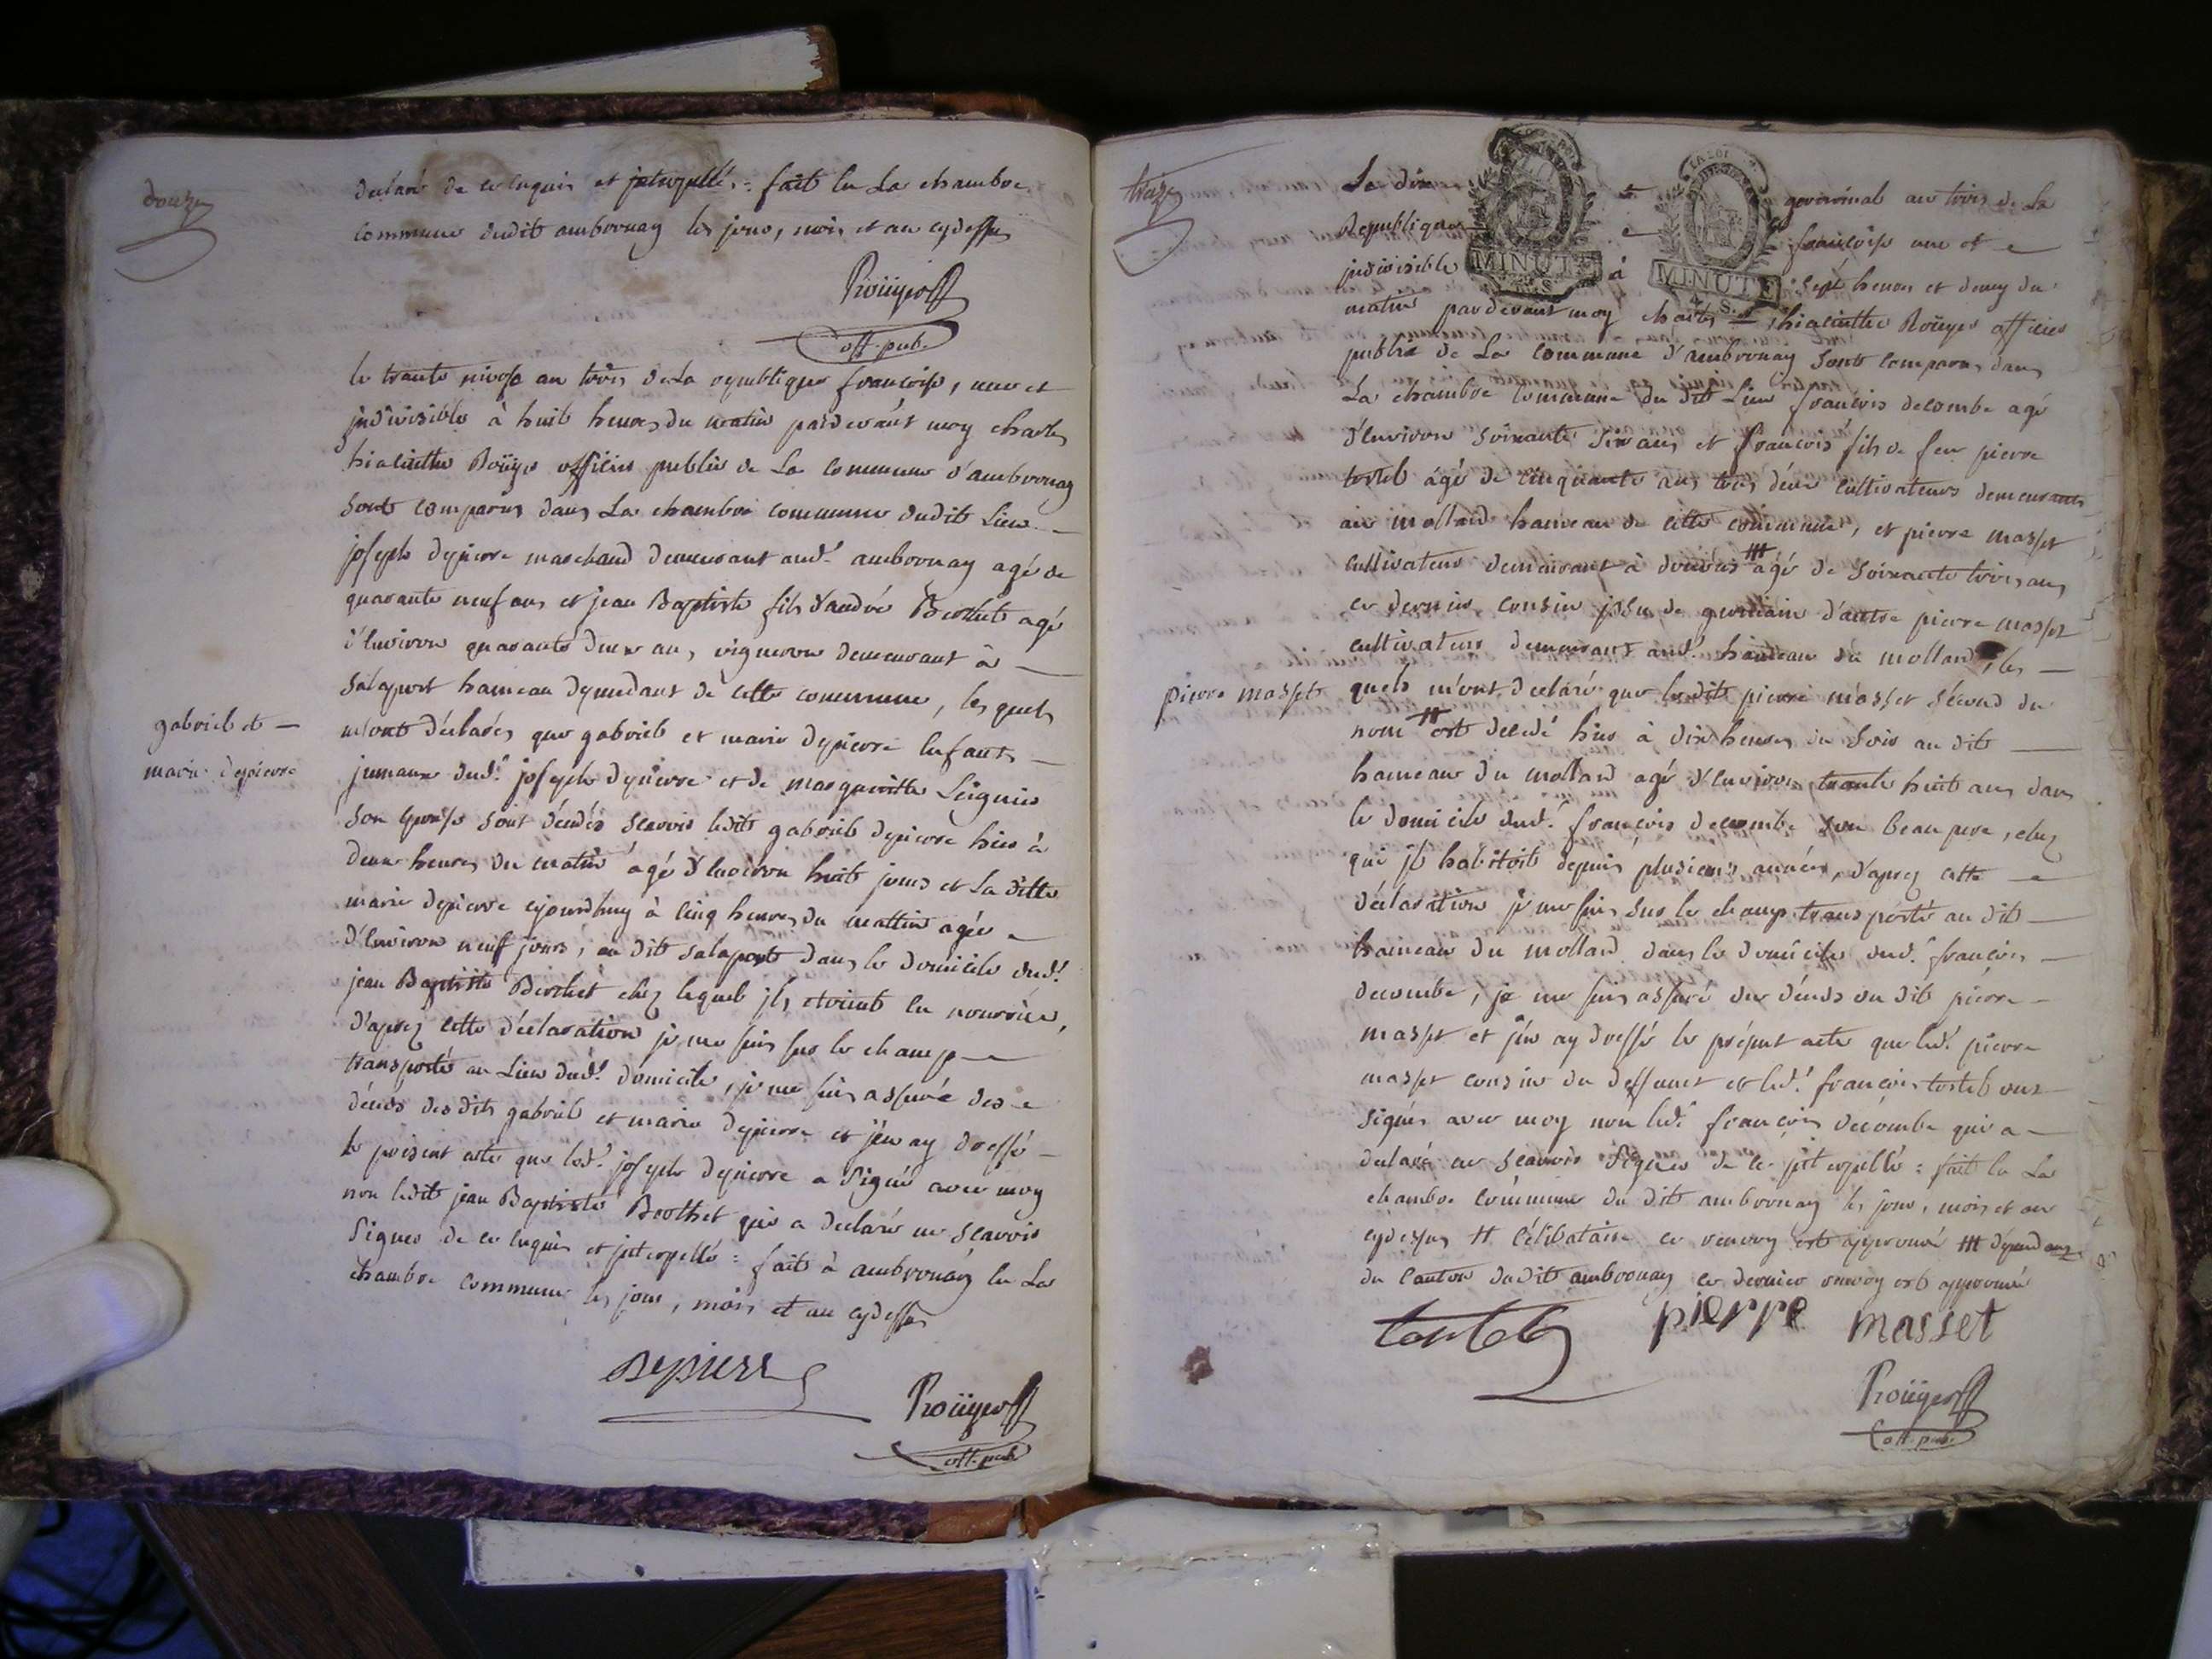 douze
declaré de ce enquis et jnterpellés : fait en La chambre
commune dudit ambronay les jour, mois et an cydessus
Roüyer off
off. pub.
le trante nivose an trois de La republique francoise, une et
jndivisible à huit heures du matin pardevant moy charles
hiacinthe Roüyer officier public de La commune d'ambronay
sont comparus dans La chambre commune dudit Lieu
joseph depierre marchand demeurant aud.t ambronay agé de
quarante neuf ans et jean Baptiste fils d'andré Berthet agé
d'environ quarante deux ans, vigneron demeurant à
salaport hameau dependant de cette commune, les quels
m'ont déclarés que gabriel et marie depierre enfants
gabriel et
marie depierre
jumaux dud.t joseph depierre et de margueritte
son epouse sont décédés scavoir ledit gabriel depierre hier à
deux heures du matin agé d'environ huit jours et La ditte
marie depierre cejourdhuy à cinq heures du mattin agée
d'environ neuf jours, au dit salaport dans le domicile dud.t
jean Baptiste Berthet chez lequel jls etoient en nourrice,
d'aprez cette déclaration je me suis sur le champ
transporté au Lieu dud.t domicile, je me suis assuré des
décés des dits gabriel et marie depierre et j'en ay dressé
le présent acte que led.t joseph depierre a signé avec moy
non ledit jean Baptiste Berthet qui a declaré ne scavoir
signer de ce enquis et jnterpellé : fait à ambronay en La
chambre commune les jour, mois et an cydessus
depierre
Roüyer off
off. pub.
treize
LA LOI
MINUTE
LA LOI
MINUTE
Le dix germinal an trois de La
Republique francoise une et
jndivisible à sept heures et demy du
matin pardevant moy charles hiacinthe Roüyer officier
public de La commune d'ambronay sont comparus dans
La chambre commune du dit Lieu francois decombe agé
d'environ soixante ans et francois fils de feu pierre
tostel âgé de cinquante ans tous deux cultivateurs demeurants
au mollard hameau de cette commune, et pierre masset
cultivateur demeurant à ### agé de soixante trois ans
ce dernier cousin jssu de germain d'autre pierre masset
cultivateur demeurant aud.t hameau du mollard, les
pierre masset
quels m'ont declaré que ledit pierre masset second du
nom # est decedé hier à dix heures du soir au dit
hameau du mollard agé d'environ trante huit ans dans
le domicile dud.t francois decombe son beau pere, chez
qui jl habitoit depuis plusieurs années, d'aprez cette
déclaration je me suis sur le champ transporté au dit
hameau du mollard dans le domicile dud.t francois
decombe, je me suis assuré du décés du dit pierre
masset et j'en ay dressé le présent acte que led.t pierre
masset cousin du deffunct et led.t francois tostel ont
signés avec moy non led.t francois decombe qui a
declaré ne scavoir signer de ce jnterpellé : fait en La
chambre commune du dit ambronay les jour, mois et an
cydessus # célibataire ce renvoy est approuvé ### dépendant
du canton dudit ambronay ce dernier renvoy est approuvé
tostel
pierre masset
Roüyer off
off. pub.